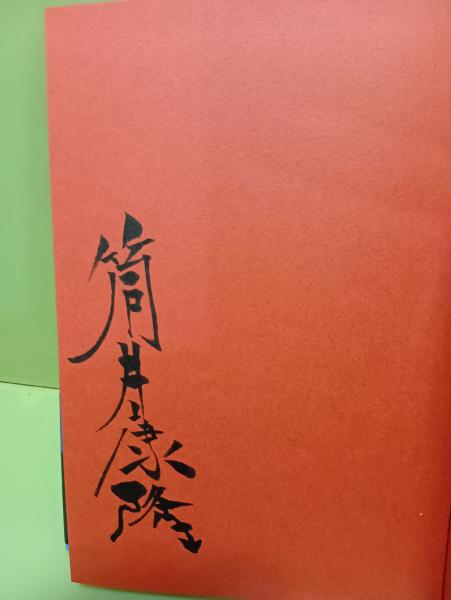 筒井康隆